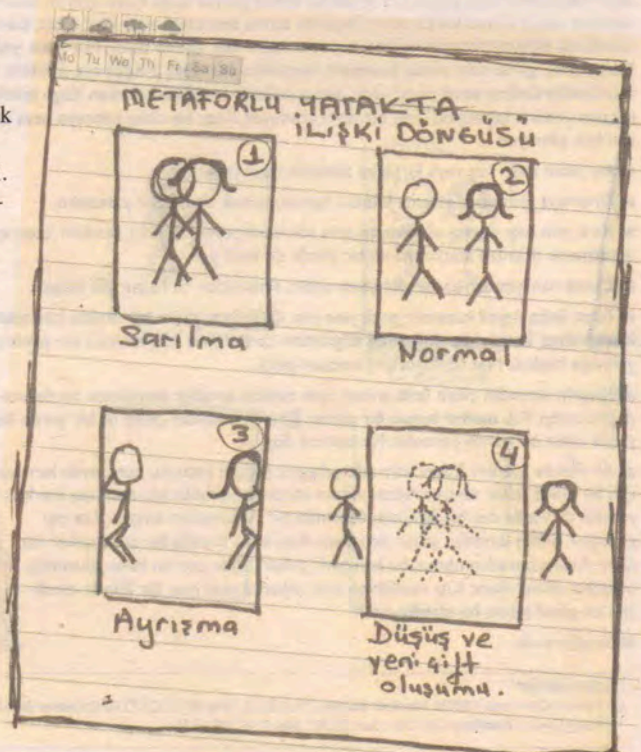 k
.
Mo Tu We Th Fr Sa Su
METAFORLU YATAKTA
İLİŞKİ DÖNGÜSÜ
1
2
Sarılma
Normal
3
4
Ayrışma
Düşüş ve
yeni çift
oluşumu.